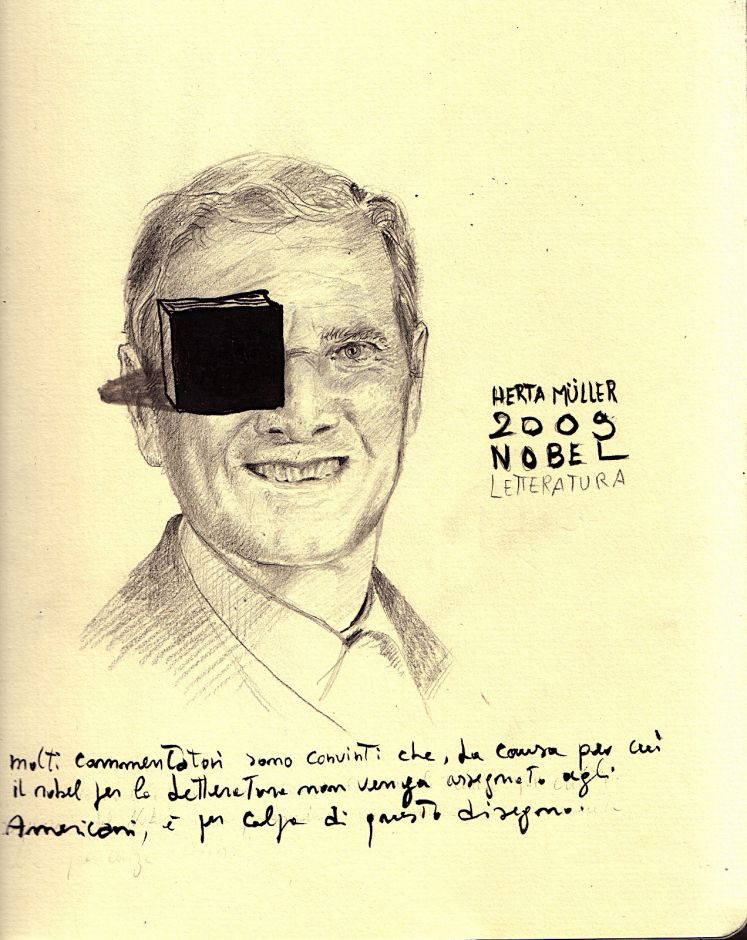 HERTA MÜLLER
2009
NOBEL
LETTERATURA
molti commentatori sono convinti che, la causa per cui
il nobel per la letteratura non venga assegnato agli
Americani, è per colpa di questo disegno.